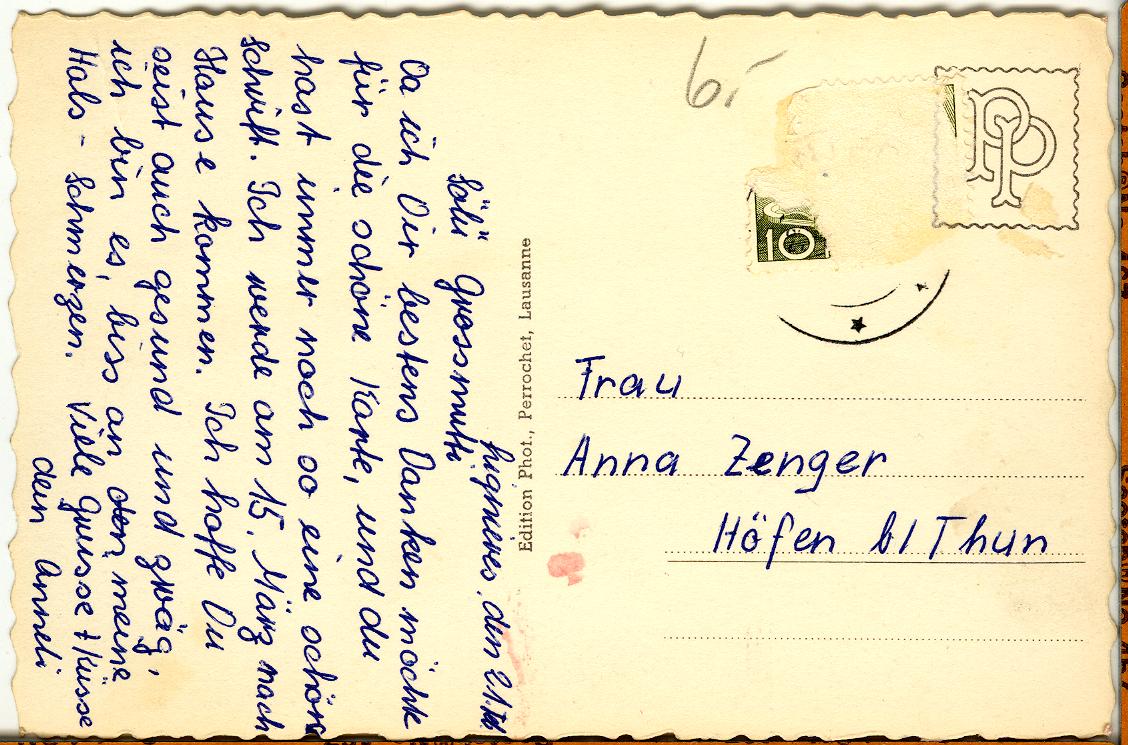 Lignières, den 21.
Sälü Grossmutti
Da ich Dir bestens Danken möchte
für die schöne Karte, und du
hast immer noch so eine schöne
schrift. Ich werde am 15. März nach
Hause kommen. Ich hoffe Du
seist auch gesund und zwäg,
ich bin es, biss an den meine
Hals - schmerzen. Viele Grüsse + Küsse
dein Anneli
Edition Phot., Perrochet, Lausanne
6.-
PP
10
Frau
Anna Zenger
Höfen b/Thun